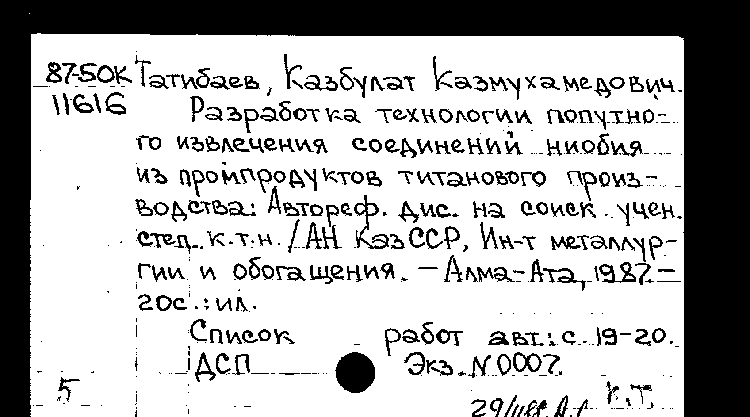 87-50К Татибаев, Казбулат Казмухамедович.
11616 Разработка технологии попутно-
го извлечения соединений ниобия
из промпродуктов титанового произ-
водства: Автореф. дис. на соиск. учен.
степ. к.т.н. /АН КазССР, Ин-т металлур-
гии и обогащения. – Алма-Ата, 1987. –
20с.: ил.
Список работ авт.: с. 19-20.
ДСП Экз. N 0007.
5 К.Т.